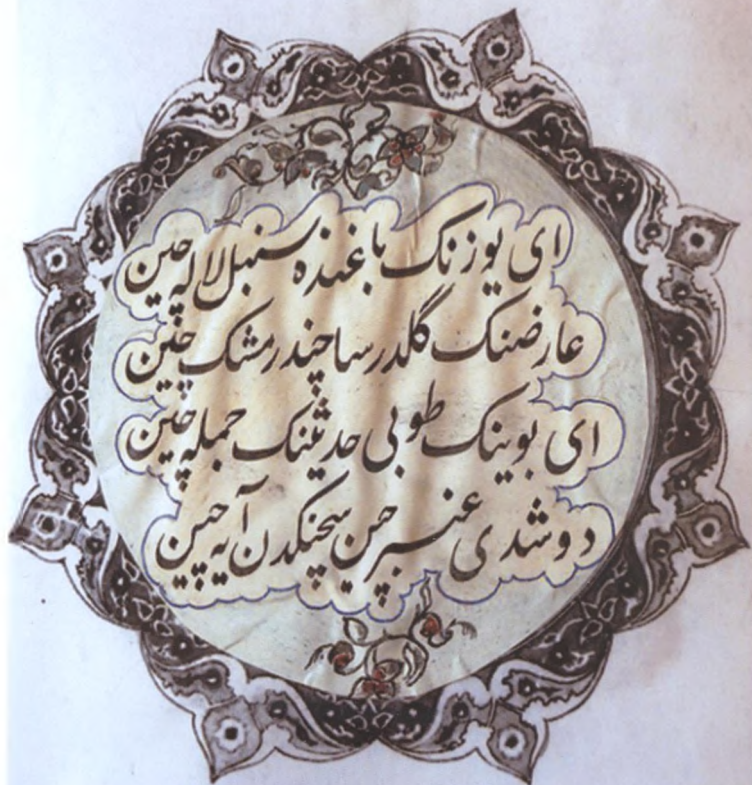 ای یوزنک باغنده سنبل لاله چین
عارضنک گلدر سا چندر مشک چین
ای بوینک طوبی حدثینک جمله چین
دوشدی عنبر چین سچنکدن آیه چین